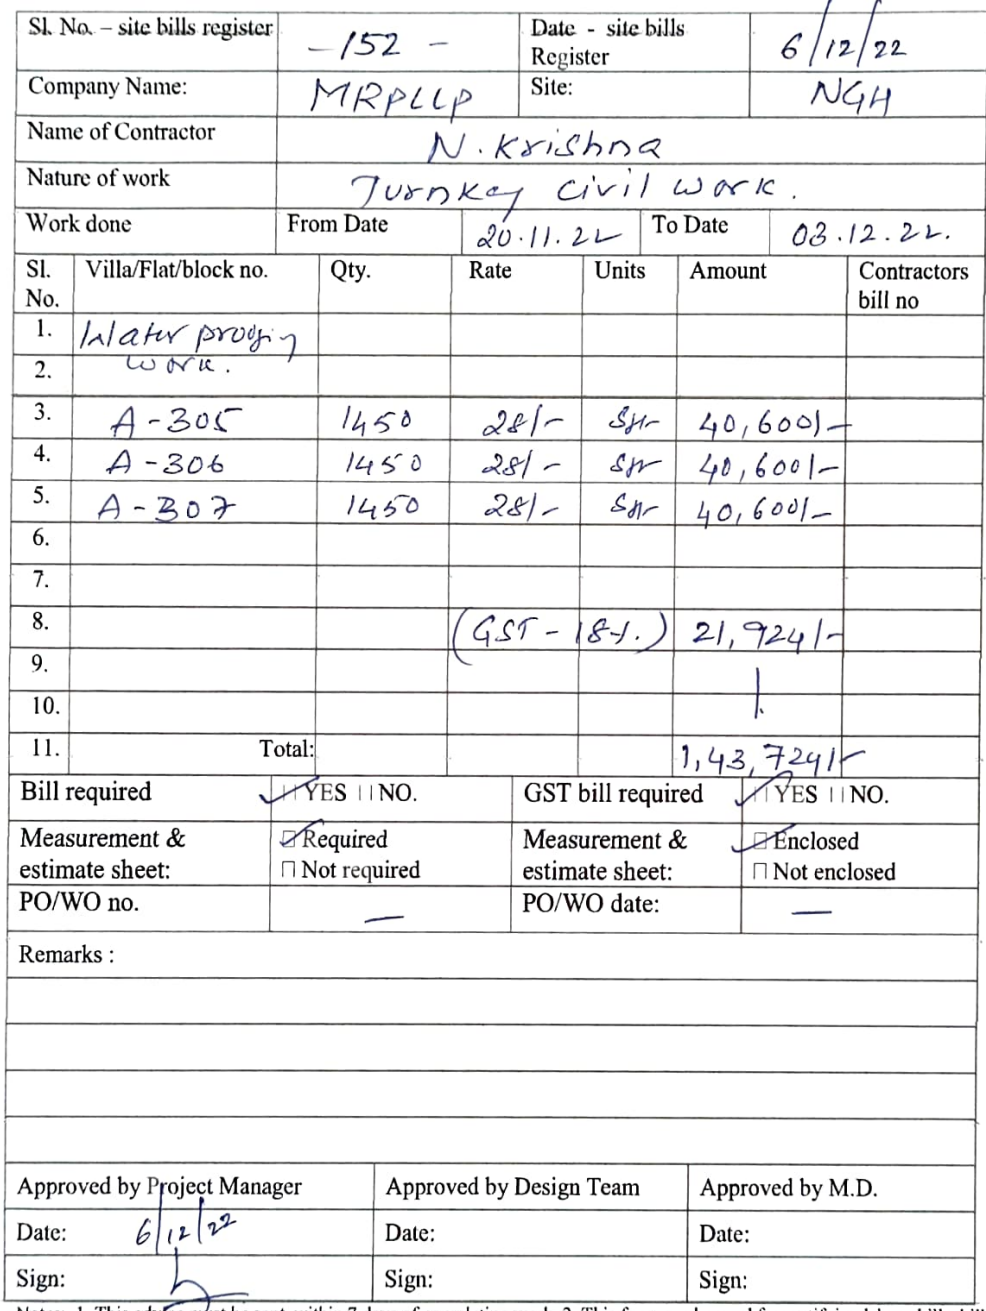 Sl. No. – site bills register - 152 - Date - site bills Register 6/12/22
Company Name: MRPLLP Site: NGH
Name of Contractor N. Krishna
Nature of work Turnkey civil work.
Work done From Date 20.11.22 To Date 03.12.22.
Sl. No. Villa/Flat/block no. Qty. Rate Units Amount Contractors bill no
1. Water proofing
2. work.
3. A-305 1450 28/- Sft 40,600/-
4. A-306 1450 28/- Sft 40,600/-
5. A-307 1450 28/- Sft 40,600/-
6.
7.
8. (GST - 18%.) 21,924/-
9.
10.
11. Total: 1,43,724/-
Bill required YES NO. GST bill required YES NO.
Measurement & estimate sheet: Required Measurement & estimate sheet: Enclosed
Not required Not enclosed
PO/WO no. — PO/WO date: —
Remarks :
Approved by Project Manager Approved by Design Team Approved by M.D.
Date: 6/12/22 Date: Date:
Sign: Sign: Sign: